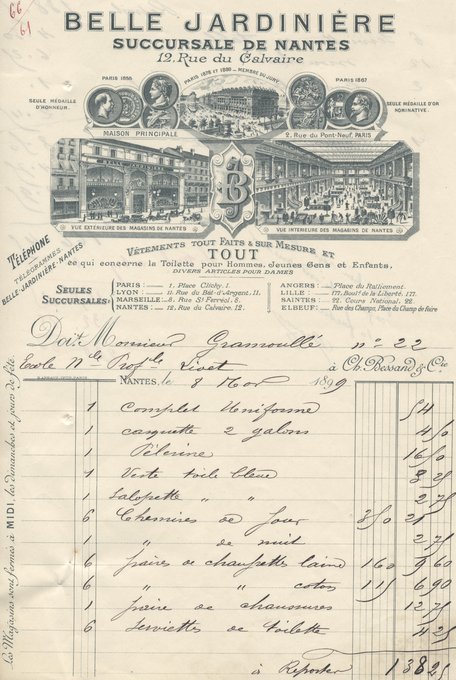 66
61
BELLE JARDINIÈRE
SUCCURSALE DE NANTES
12, Rue du Calvaire
PARIS 1878 et 1889 - MEMBRE DU JURY
PARIS 1855
PARIS 1867
SEULE MÉDAILLE D'HONNEUR.
SEULE MÉDAILLE D'OR NOMINATIVE.
MAISON PRINCIPALE
2, Rue du Pont-Neuf, PARIS
BELLE JARDINIERE
BJ
VUE EXTÉRIEURE DES MAGASINS DE NANTES
VUE INTÉRIEURE DES MAGASINS DE NANTES
TÉLÉPHONE
TÉLÉGRAMMES
BELLE-JARDINIÈRE-NANTES
VÊTEMENTS TOUT FAITS & SUR MESURE ET
TOUT
ce qui concerne la Toilette pour Hommes, Jeunes Gens et Enfants,
DIVERS ARTICLES POUR DAMES
SEULES SUCCURSALES:
PARIS: 1, Place Clichy, 1.
LYON: 11, Rue du Bât-d'Argent, 11.
MARSEILLE: 8, Rue St Ferréol, 8.
NANTES: 12, Rue du Calvaire, 12.
ANGERS: Place du Ralliement.
LILLE: 177, Bould. de la Liberté, 177.
SAINTES: 22, Cours National, 22.
ELBEUF: Rue des Champs, Place du Champ de foire
Doit Monsieur Gramoullé n° 22
Ecole Nle Profle Livet à Ch. Bessand & Cie
NANTES, le 8 Nov 1899
1 Complet Uniforme 54
1 casquette 2 galons 4 50
1 Pélerine 16 50
1 Veste toile bleue 3 25
1 Salopette " " 2 75
6 Chemises de jour 3 50 21
1 " de nuit 2 75
6 paires de chaussettes laine 1 60 9 60
6 " " coton 1 15 6 90
1 paire de chaussures 12 75
6 Serviettes de toilette 4 25
à Reporter 138 25
Les Magasins sont fermés à MIDI, les dimanches et jours de fête.